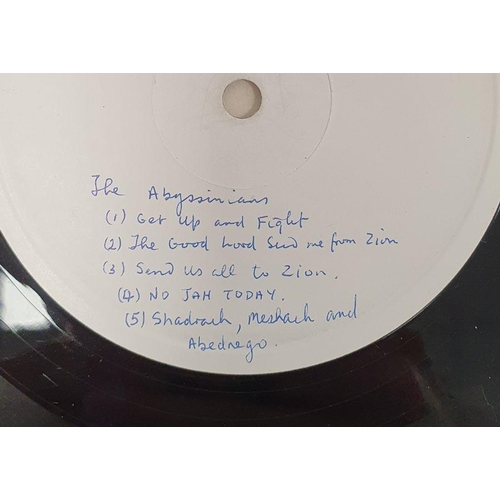 The Abyssinians
(1) Get Up and Fight
(2) The Good Lord Send me from Zion
(3) Send Us all to Zion.
(4) NO JAH TODAY.
(5) Shadrach, Meshach and
Abednego.